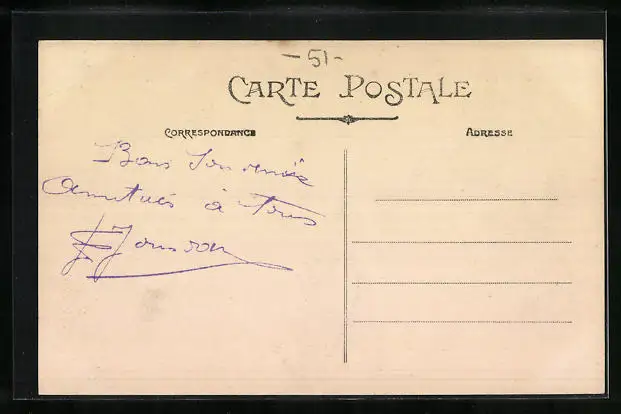 - 51 -
CARTE POSTALE
CORRESPONDANCE
ADRESSE
Bon Souvenir
Amitiés à Tous